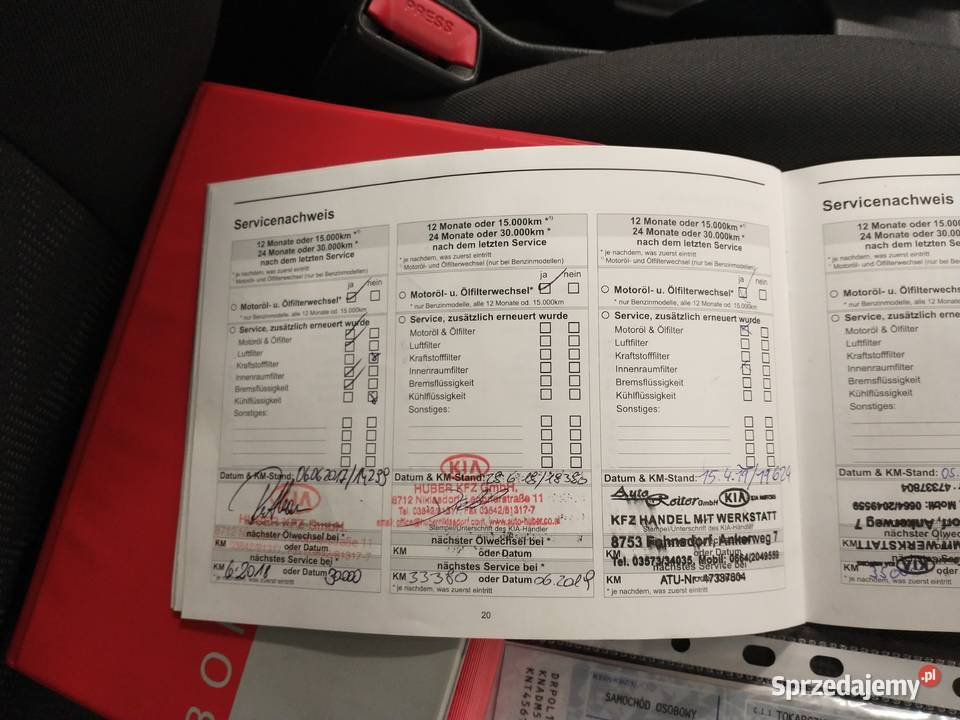 PRESS
Servicenachweis
12 Monate oder 15.000km *¹⁾
24 Monate oder 30.000km *
nach dem letzten Service
* je nachdem, was zuerst eintritt
Motoröl- und Ölfilterwechsel (nur bei Benzinmodellen)
ja nein
Motoröl- u. Ölfilterwechsel*
* nur Benzinmodelle, alle 12 Monate od. 15.000km
Service, zusätzlich erneuert wurde
Motoröl & Ölfilter
Luftfilter
Kraftstofffilter
Innenraumfilter
Bremsflüssigkeit
Kühlflüssigkeit
Sonstiges:
Datum & KM-Stand: 06.06.2017/
KIA
HUBER KFZ GmbH
nächster Ölwechsel bei *
KM oder Datum
nächstes Service bei *
KM 6.2018 oder Datum 30000
* je nachdem, was zuerst eintritt
12 Monate oder 15.000km *¹⁾
24 Monate oder 30.000km *
nach dem letzten Service
* je nachdem, was zuerst eintritt
¹⁾ Motoröl- und Ölfilterwechsel (nur bei Benzinmodellen)
ja nein
Motoröl- u. Ölfilterwechsel*
* nur Benzinmodelle, alle 12 Monate od. 15.000km
Service, zusätzlich erneuert wurde
Motoröl & Ölfilter
Luftfilter
Kraftstofffilter
Innenraumfilter
Bremsflüssigkeit
Kühlflüssigkeit
Sonstiges:
Datum & KM-Stand: 28.6.18/18380
KIA
HUBER KFZ GmbH.
8712 Niklasdorf
11
Stempel/Unterschrift des KIA-Händler
nächster Ölwechsel bei *
KM oder Datum
nächstes Service bei *
KM 33380 oder Datum 06.2019
* je nachdem, was zuerst eintritt
12 Monate oder 15.000km *¹⁾
24 Monate oder 30.000km *
nach dem letzten Service
* je nachdem, was zuerst eintritt
Motoröl- und Ölfilterwechsel (nur bei Benzinmodellen)
ja nein
Motoröl- u. Ölfilterwechsel*
* nur Benzinmodelle, alle 12 Monate od. 15.000km
Service, zusätzlich erneuert wurde
Motoröl & Ölfilter
Luftfilter
Kraftstofffilter
Innenraumfilter
Bremsflüssigkeit
Kühlflüssigkeit
Sonstiges:
Datum & KM-Stand: 15.4.19/19624
Auto Reiter GmbH KIA KIA MOTORS
KFZ HANDEL MIT WERKSTATT
Stempel/Unterschrift des KIA-Händler
8753 Fohnsdorf, Ankerweg 7
Tel. 03573/34035, Mobil: 0664/2049559
KM oder Datum
nächstes Service bei
KM
* je nachdem, was zuerst eintritt
20
Servicenachweis
12 Monate oder
24 Monate oder 30.
nach dem letzten
* je nachdem, was zuerst eintritt
Motoröl- u. Ölfilterwechs
* nur Benzinmodelle, alle 12
Service, zusätzlich erne
Motoröl & Ölfilter
Luftfilter
Kraftstofffilter
Innenraumfilter
Bremsflüssigkeit
Kühlflüssigkeit
Sonstiges:
Datum & KM-Stand: 05.
KIA
KM
* je nachdem, was zuerst eintritt
BO
SAMOCHÓD OSOBOWY
Sprzedajemy.pl